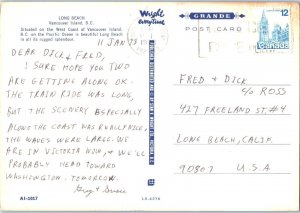 LONG BEACH
Vancouver Island, B.C.
Situated on the West Coast of Vancouver Island,
B.C. on the Pacific Ocean is beautiful Long Beach
in all its rugged splendour.
11 JAN
DEAR DICK & FRED,
I SURE HOPE YOU TWO
ARE GETTING ALONG OK.
THE TRAIN RIDE WAS LONG
BUT THE SCENERY ESPECIALLY
ALONG THE COAST WAS REALLY NICE.
THE WAVES WERE LARGE. WE
ARE IN VICTORIA NOW, & WE'LL
PROBABLY HEAD TOWARD
WASHINGTON TOMORROW.
A1-1057
Wright everytime
GRANDE
POST CARD
12
Canada
FRED & DICK
c/o ROSS
427 FREELAND ST. #4
LONG BEACH, CALIF.
90807 U.S.A